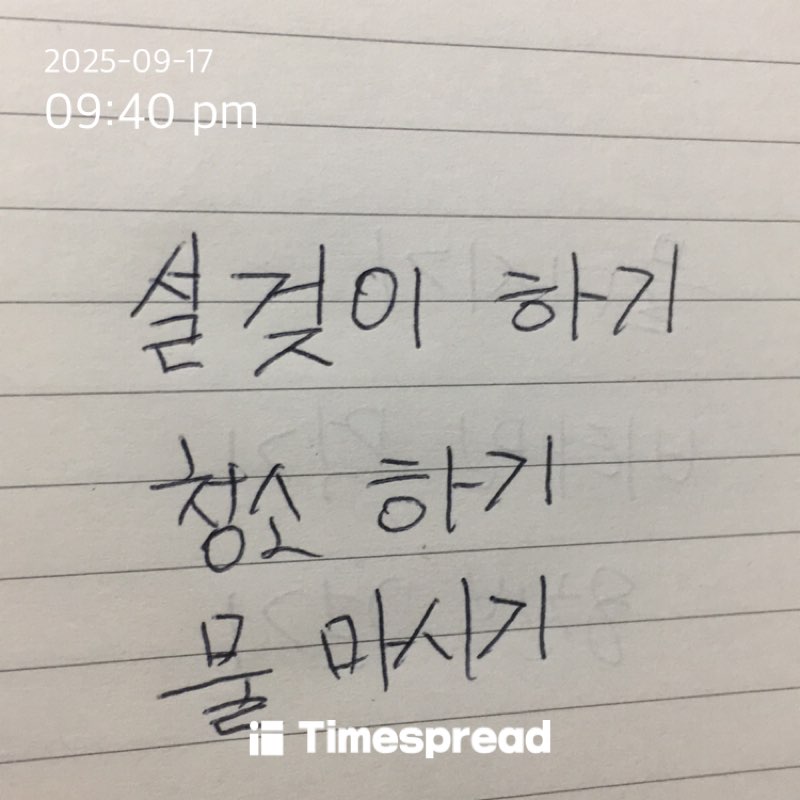 2025-09-17
09:40 pm
설겆이 하기
청소 하기
물 마시기
Timespread